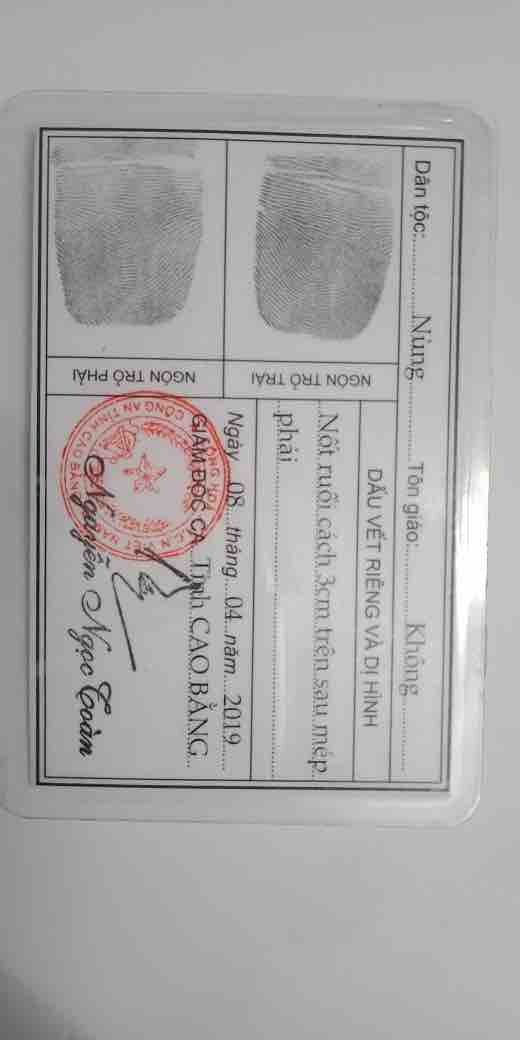 Dân tộc: Nùng Tôn giáo: Không
DẤU VẾT RIÊNG VÀ DỊ HÌNH
Nốt ruồi cách 3cm trên sau mép
phải
NGÓN TRỎ TRÁI
NGÓN TRỎ PHẢI
Ngày 08 tháng 04 năm 2019
GIÁM ĐỐC CA Tỉnh CAO BẰNG
CÔNG AN TỈNH CAO BẰNG
Nguyễn Ngọc Toàn